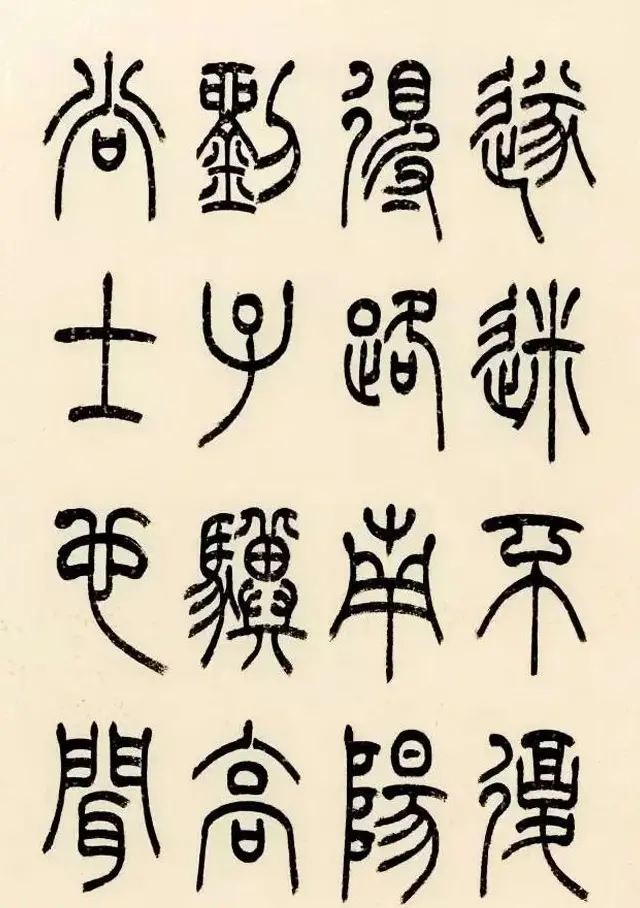 遂迷不復
得路南陽
劉子驥高
尚士也聞